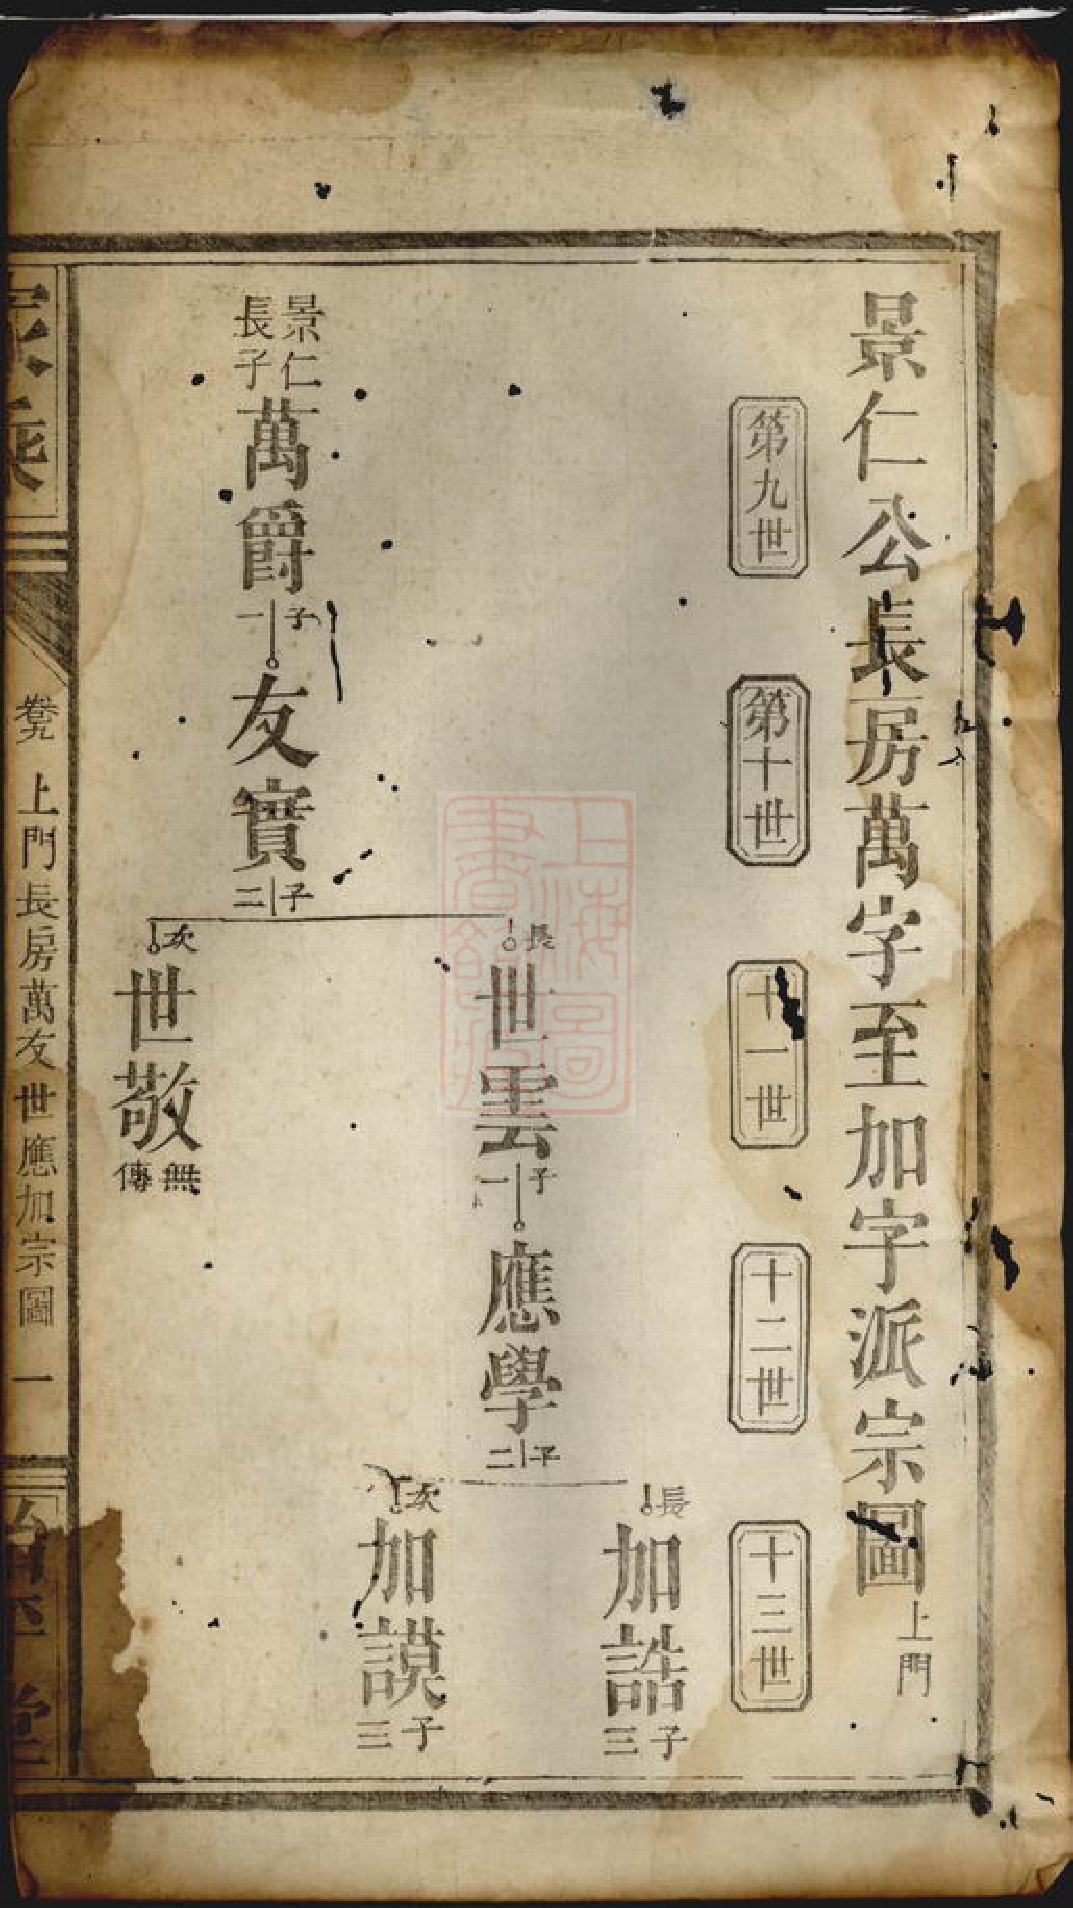 景仁公長房萬字至加字派宗圖 上門
第九世
第十世
十一世
十二世
十三世
長 加誥 子三
長 世雲 子一 應學 子二
次 加謨 子三
景仁長子 萬爵 子一 友實 子二
次 世敬 無傳
家乘
卷九 上門長房萬友世應加宗圖 一
堂
上海圖書館藏